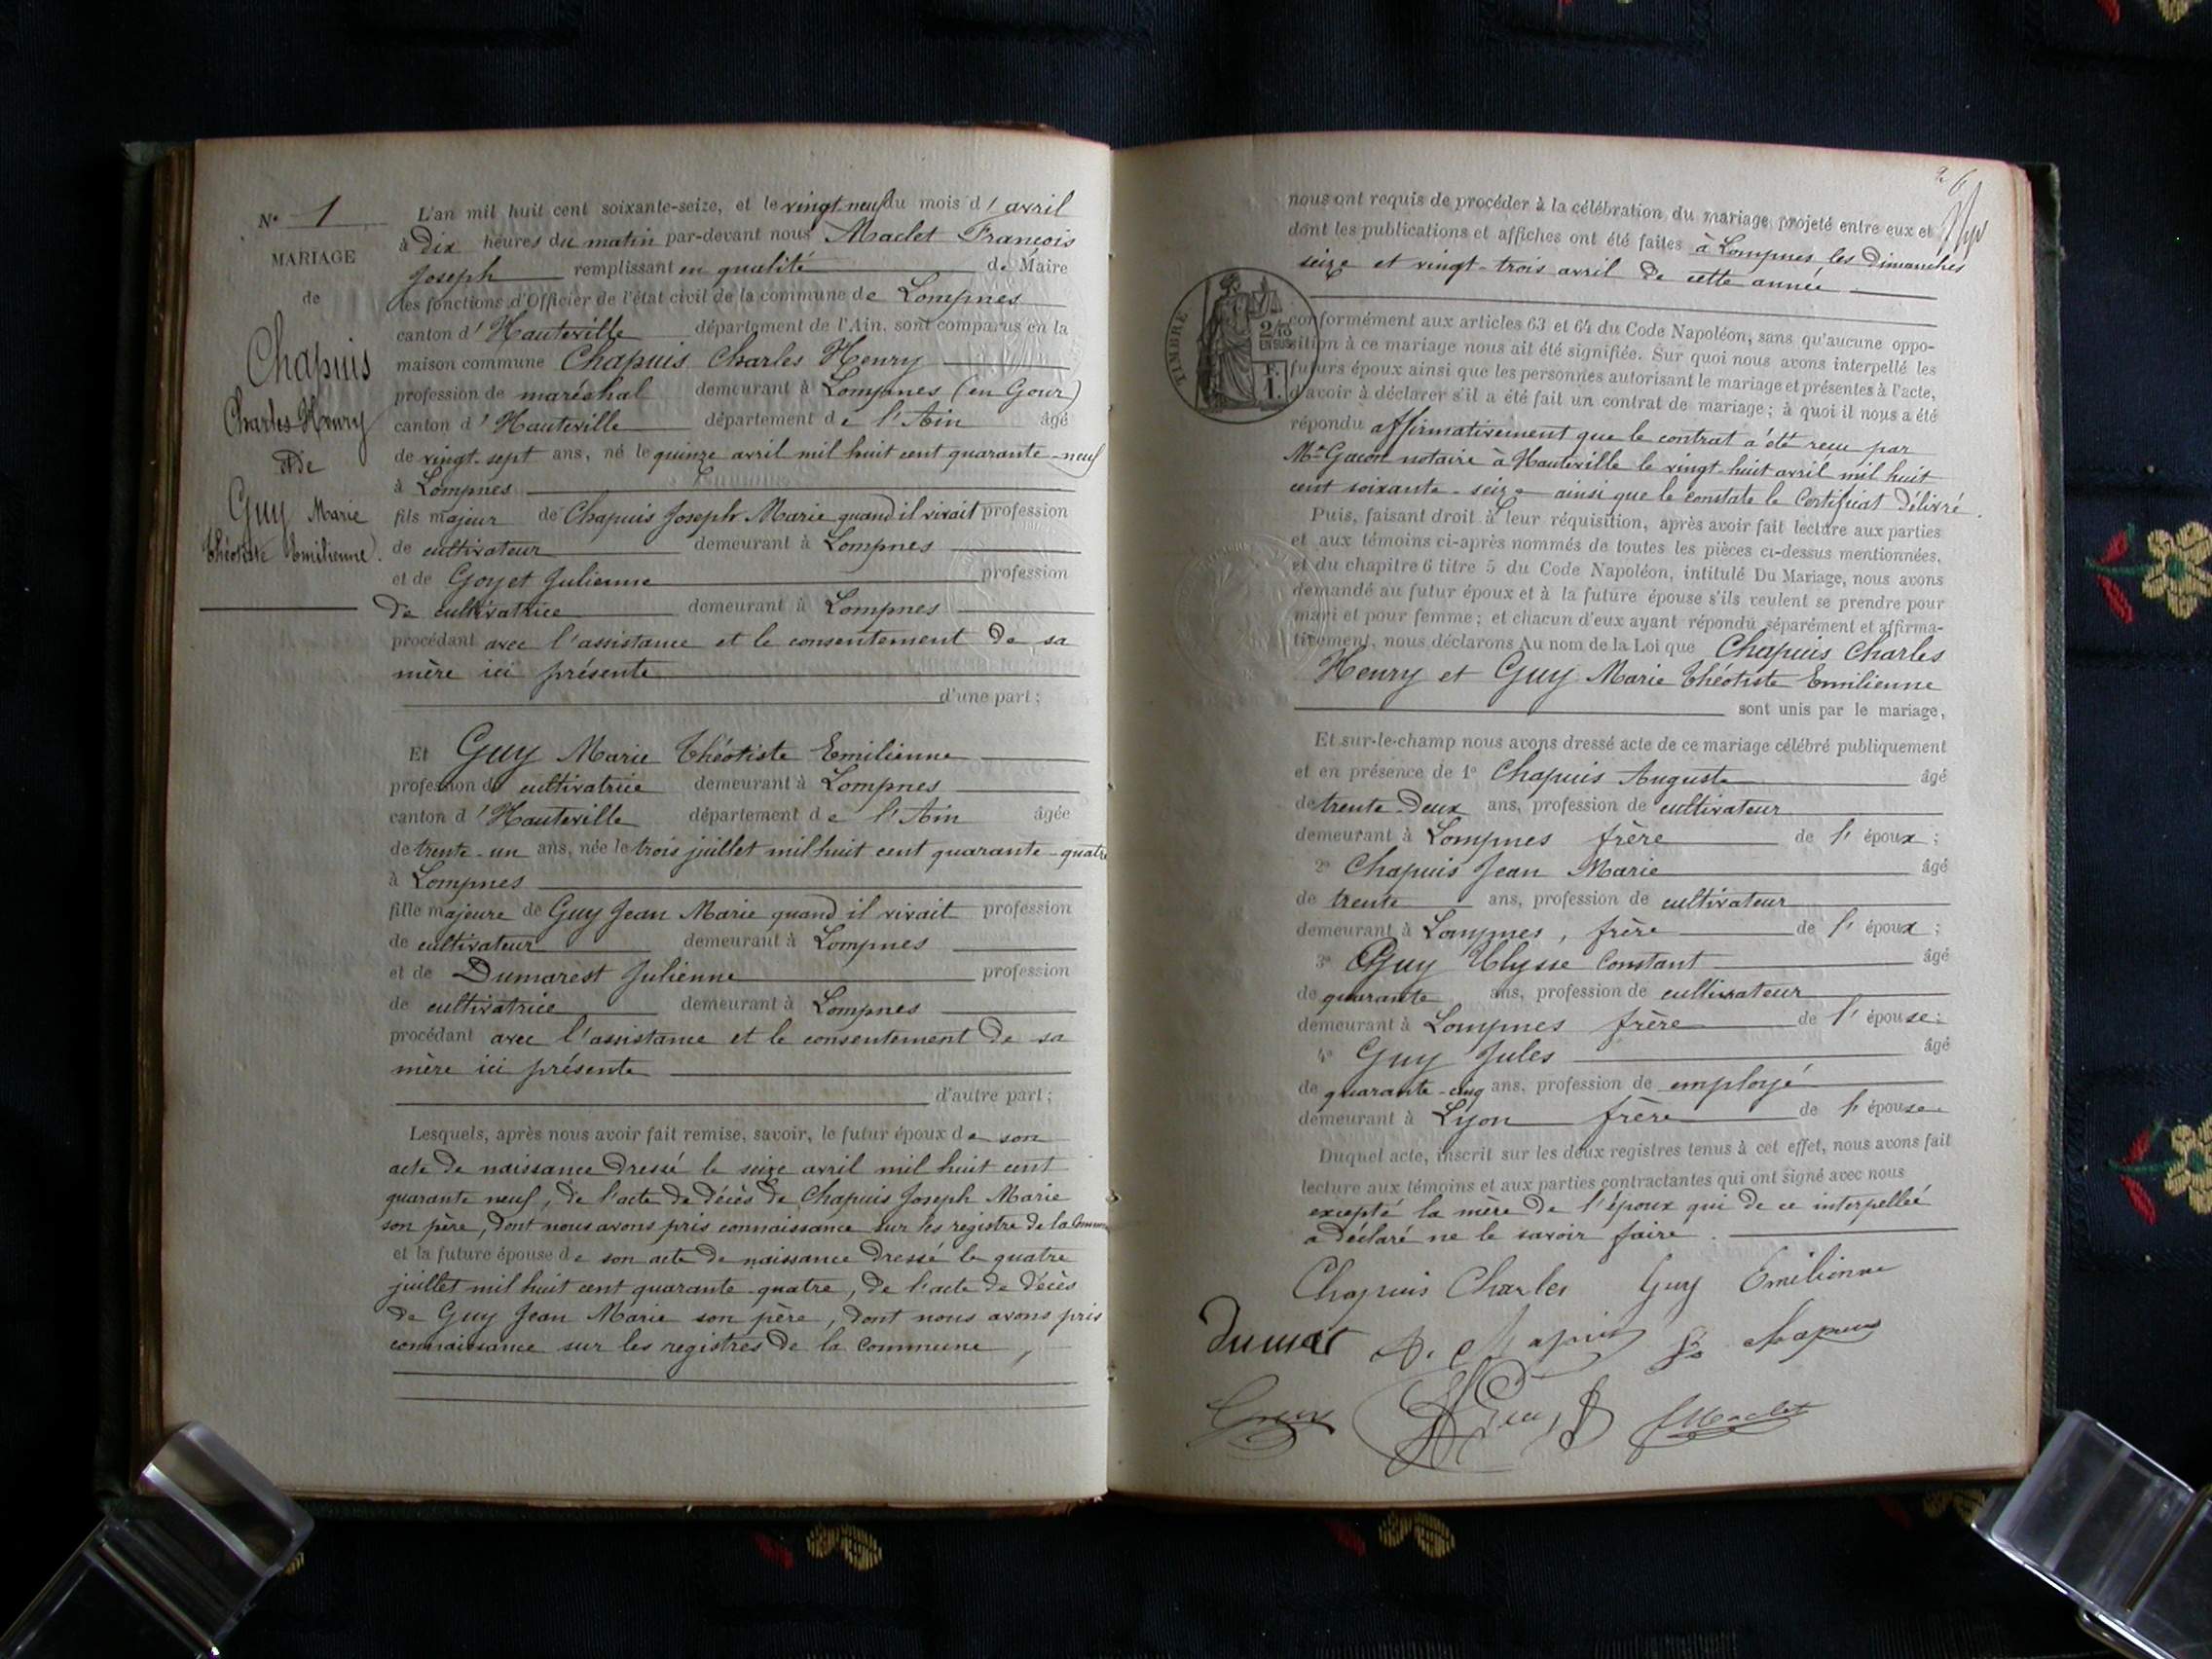 N° 1
MARIAGE
de
Chapuis
Charles Henry
et de
Guy Marie
Théotiste Emilienne.
L'an mil huit cent soixante-seize, et le vingt neuf du mois d'avril
à Dix heures du matin par-devant nous Maclet François
Joseph remplissant en qualité de Maire
les fonctions d'Officier de l'état civil de la commune de Lompnes
canton d'Hauteville département de l'Ain, sont comparus en la
maison commune Chapuis Charles Henry
profession de maréchal demeurant à Lompnes (en Gour)
canton d'Hauteville département de l'Ain âgé
de vingt-sept ans, né le quinze avril mil huit cent quarante-neuf
à Lompnes
fils majeur de Chapuis Joseph Marie quand il vivait profession
de cultivateur demeurant à Lompnes
et de Goyet Julienne profession
de cultivatrice demeurant à Lompnes
procédant avec l'assistance et le consentement de sa
mère ici présente
d'une part;
Et Guy Marie Théotiste Emilienne
profession de cultivatrice demeurant à Lompnes
canton d'Hauteville département de l'Ain âgée
de trente-un ans, née le trois juillet mil huit cent quarante-quatre
à Lompnes
fille majeure de Guy Jean Marie quand il vivait profession
de cultivateur demeurant à Lompnes
et de Dumarest Julienne profession
de cultivatrice demeurant à Lompnes
procédant avec l'assistance et le consentement de sa
mère ici présente
d'autre part;
Lesquels, après nous avoir fait remise, savoir, le futur époux de son
acte de naissance dressé le seize avril mil huit cent
quarante neuf, de l'acte de décès de Chapuis Joseph Marie
son père, dont nous avons pris connaissance sur les registre de la Commune
et la future épouse de son acte de naissance dressé le quatre
juillet mil huit cent quarante-quatre, de l'acte de décès
de Guy Jean Marie son père, dont nous avons pris
connaissance sur les registres de la Commune,
nous ont requis de procéder à la célébration du mariage projeté entre eux et
dont les publications et affiches ont été faites à Lompnes les dimanches
seize et vingt-trois avril de cette année
TIMBRE
2/10
EN SUS
F.
1.
conformément aux articles 63 et 64 du Code Napoléon, sans qu'aucune oppo-
sition à ce mariage nous ait été signifiée. Sur quoi nous avons interpellé les
futurs époux ainsi que les personnes autorisant le mariage et présentes à l'acte,
d'avoir à déclarer s'il a été fait un contrat de mariage; à quoi il nous a été
répondu affirmativement que le contrat a été reçu par
Me Gacon notaire à Hauteville le vingt-huit avril mil huit
cent soixante-seize ainsi que le constate le Certificat délivré.
Puis, faisant droit à leur réquisition, après avoir fait lecture aux parties
et aux témoins ci-après nommés de toutes les pièces ci-dessus mentionnées,
et du chapitre 6 titre 5 du Code Napoléon, intitulé Du Mariage, nous avons
demandé au futur époux et à la future épouse s'ils veulent se prendre pour
mari et pour femme; et chacun d'eux ayant répondu séparément et affirma-
tivement, nous déclarons Au nom de la Loi que Chapuis Charles
Henry et Guy Marie Théotiste Emilienne
sont unis par le mariage,
Et sur-le-champ nous avons dressé acte de ce mariage célébré publiquement
et en présence de 1° Chapuis Auguste âgé
de trente-deux ans, profession de cultivateur
demeurant à Lompnes frère de l'époux;
2° Chapuis Jean Marie âgé
de trente ans, profession de cultivateur
demeurant à Lompnes, frère de l'époux;
3° Guy Ulysse Constant âgé
de quarante ans, profession de cultivateur
demeurant à Lompnes frère de l'épouse;
4° Guy Jules âgé
de quarante-cinq ans, profession de employé
demeurant à Lyon frère de l'épouse
Duquel acte, inscrit sur les deux registres tenus à cet effet, nous avons fait
lecture aux témoins et aux parties contractantes qui ont signé avec nous
excepté la mère de l'époux qui de ce interpellée
a déclaré ne le savoir faire.
Chapuis Charles Guy Emilienne
A. Chapuis Chapuis
Guy Maclet